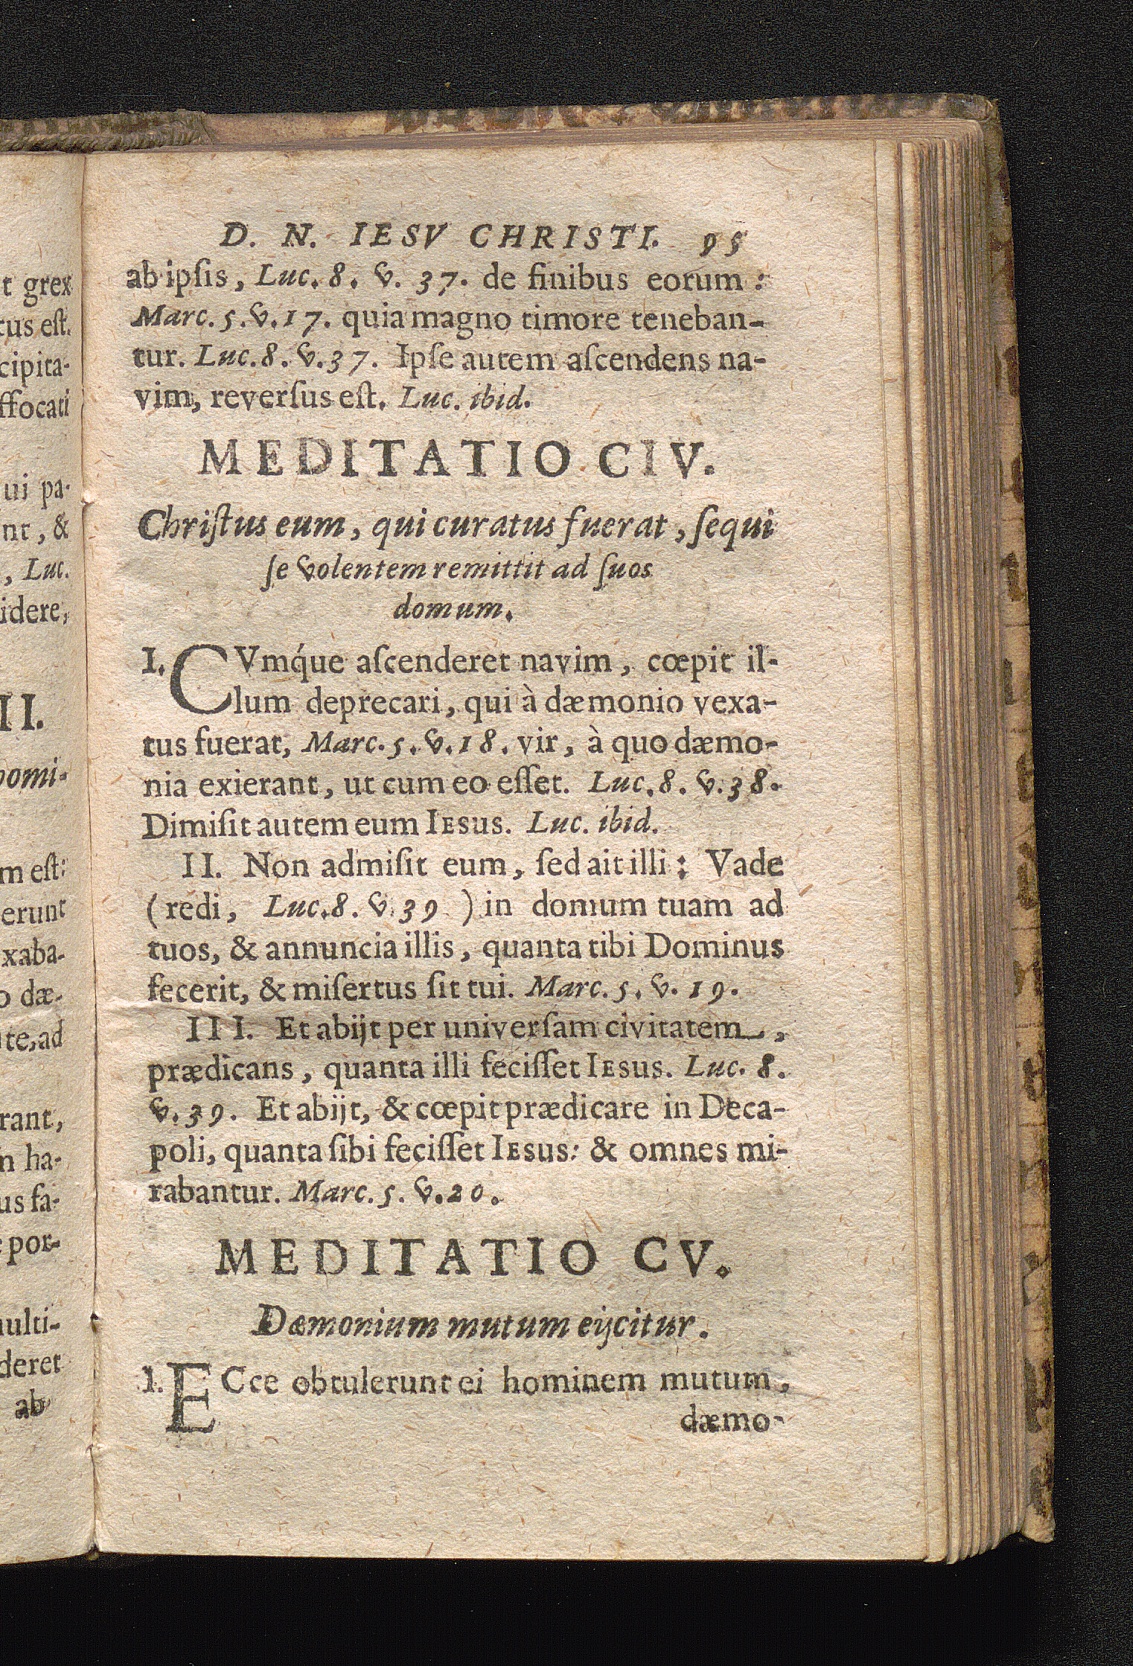 D. N. IESV CHRISTI. 95
ab ipſis, Luc. 8. v. 37. de finibus eorum:
Marc. 5. v. 17. quia magno timore teneban-
tur. Luc. 8. v. 37. Ipſe autem aſcendens na-
vim, reverſus eſt. Luc. ibid.
MEDITATIO CIV.
Chriſtus eum, qui curatus fuerat, ſequi
ſe volentem remittit ad ſuos
domum.
I. CVmq́ue aſcenderet navim, cœpit il-
lum deprecari, qui à dæmonio vexa-
tus fuerat, Marc. 5. v. 18. vir, à quo dæmo-
nia exierant, ut cum eo eſſet. Luc. 8. v. 38.
Dimiſit autem eum Iesus. Luc. ibid.
II. Non admiſit eum, ſed ait illi: Vade
(redi, Luc. 8. v. 39) in domum tuam ad
tuos, & annuncia illis, quanta tibi Dominus
fecerit, & miſertus ſit tui. Marc. 5. v. 19.
III. Et abijt per univerſam civitatem,
prædicans, quanta illi feciſſet Iesus. Luc. 8.
v. 39. Et abijt, & cœpit prædicare in Deca-
poli, quanta ſibi feciſſet Iesus: & omnes mi-
rabantur. Marc. 5. v. 20.
MEDITATIO CV.
Dæmonium mutum eijcitur.
I. ECce obtulerunt ei hominem mutum,
dæmo-
t grex
tus eſt.
cipita-
ffocati
ui pa-
nt, &
, Luc.
idere,
II.
nomi-
m eſt:
erunt
xaba-
o dæ-
te, ad
rant,
n ha-
us fa-
por-
multi-
deret
ab